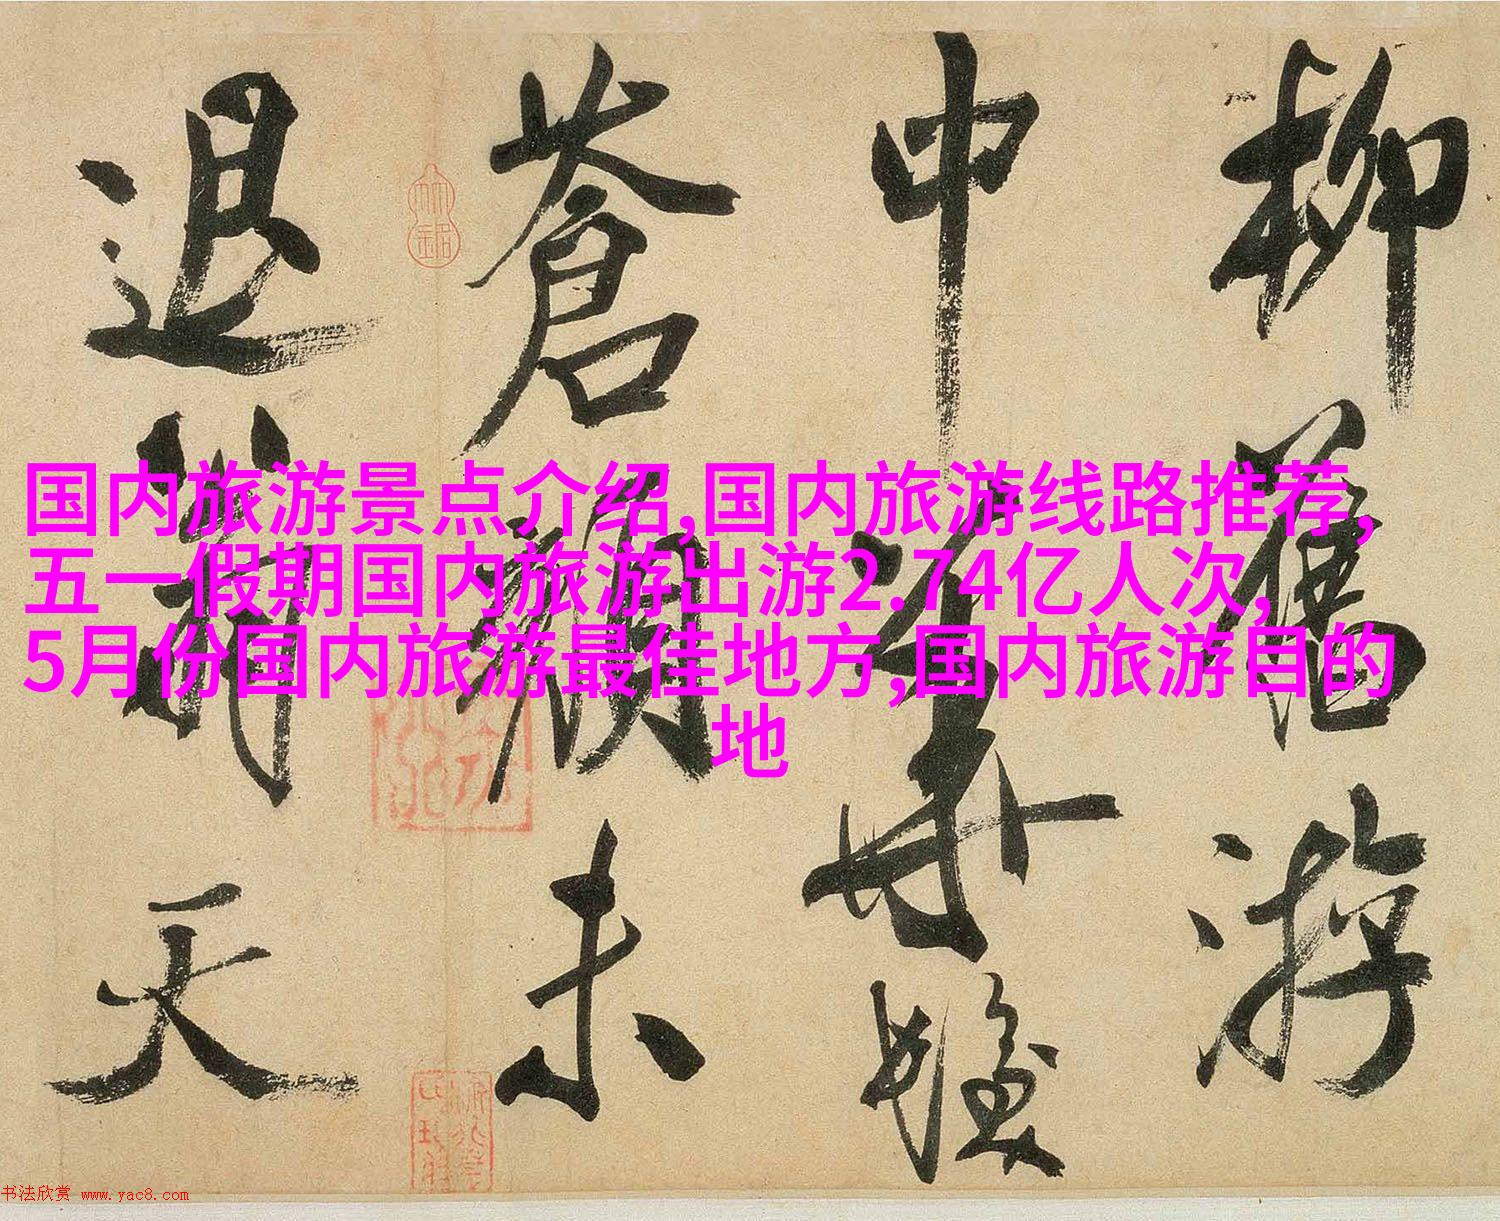 柳舊游
中
蒼顔未
退
天
国内旅游景点介绍,国内旅游线路推荐,
五一假期国内旅游出游2.74亿人次,
5月份国内旅游最佳地方,国内旅游目的
地
书法欣赏 www.yac8.com